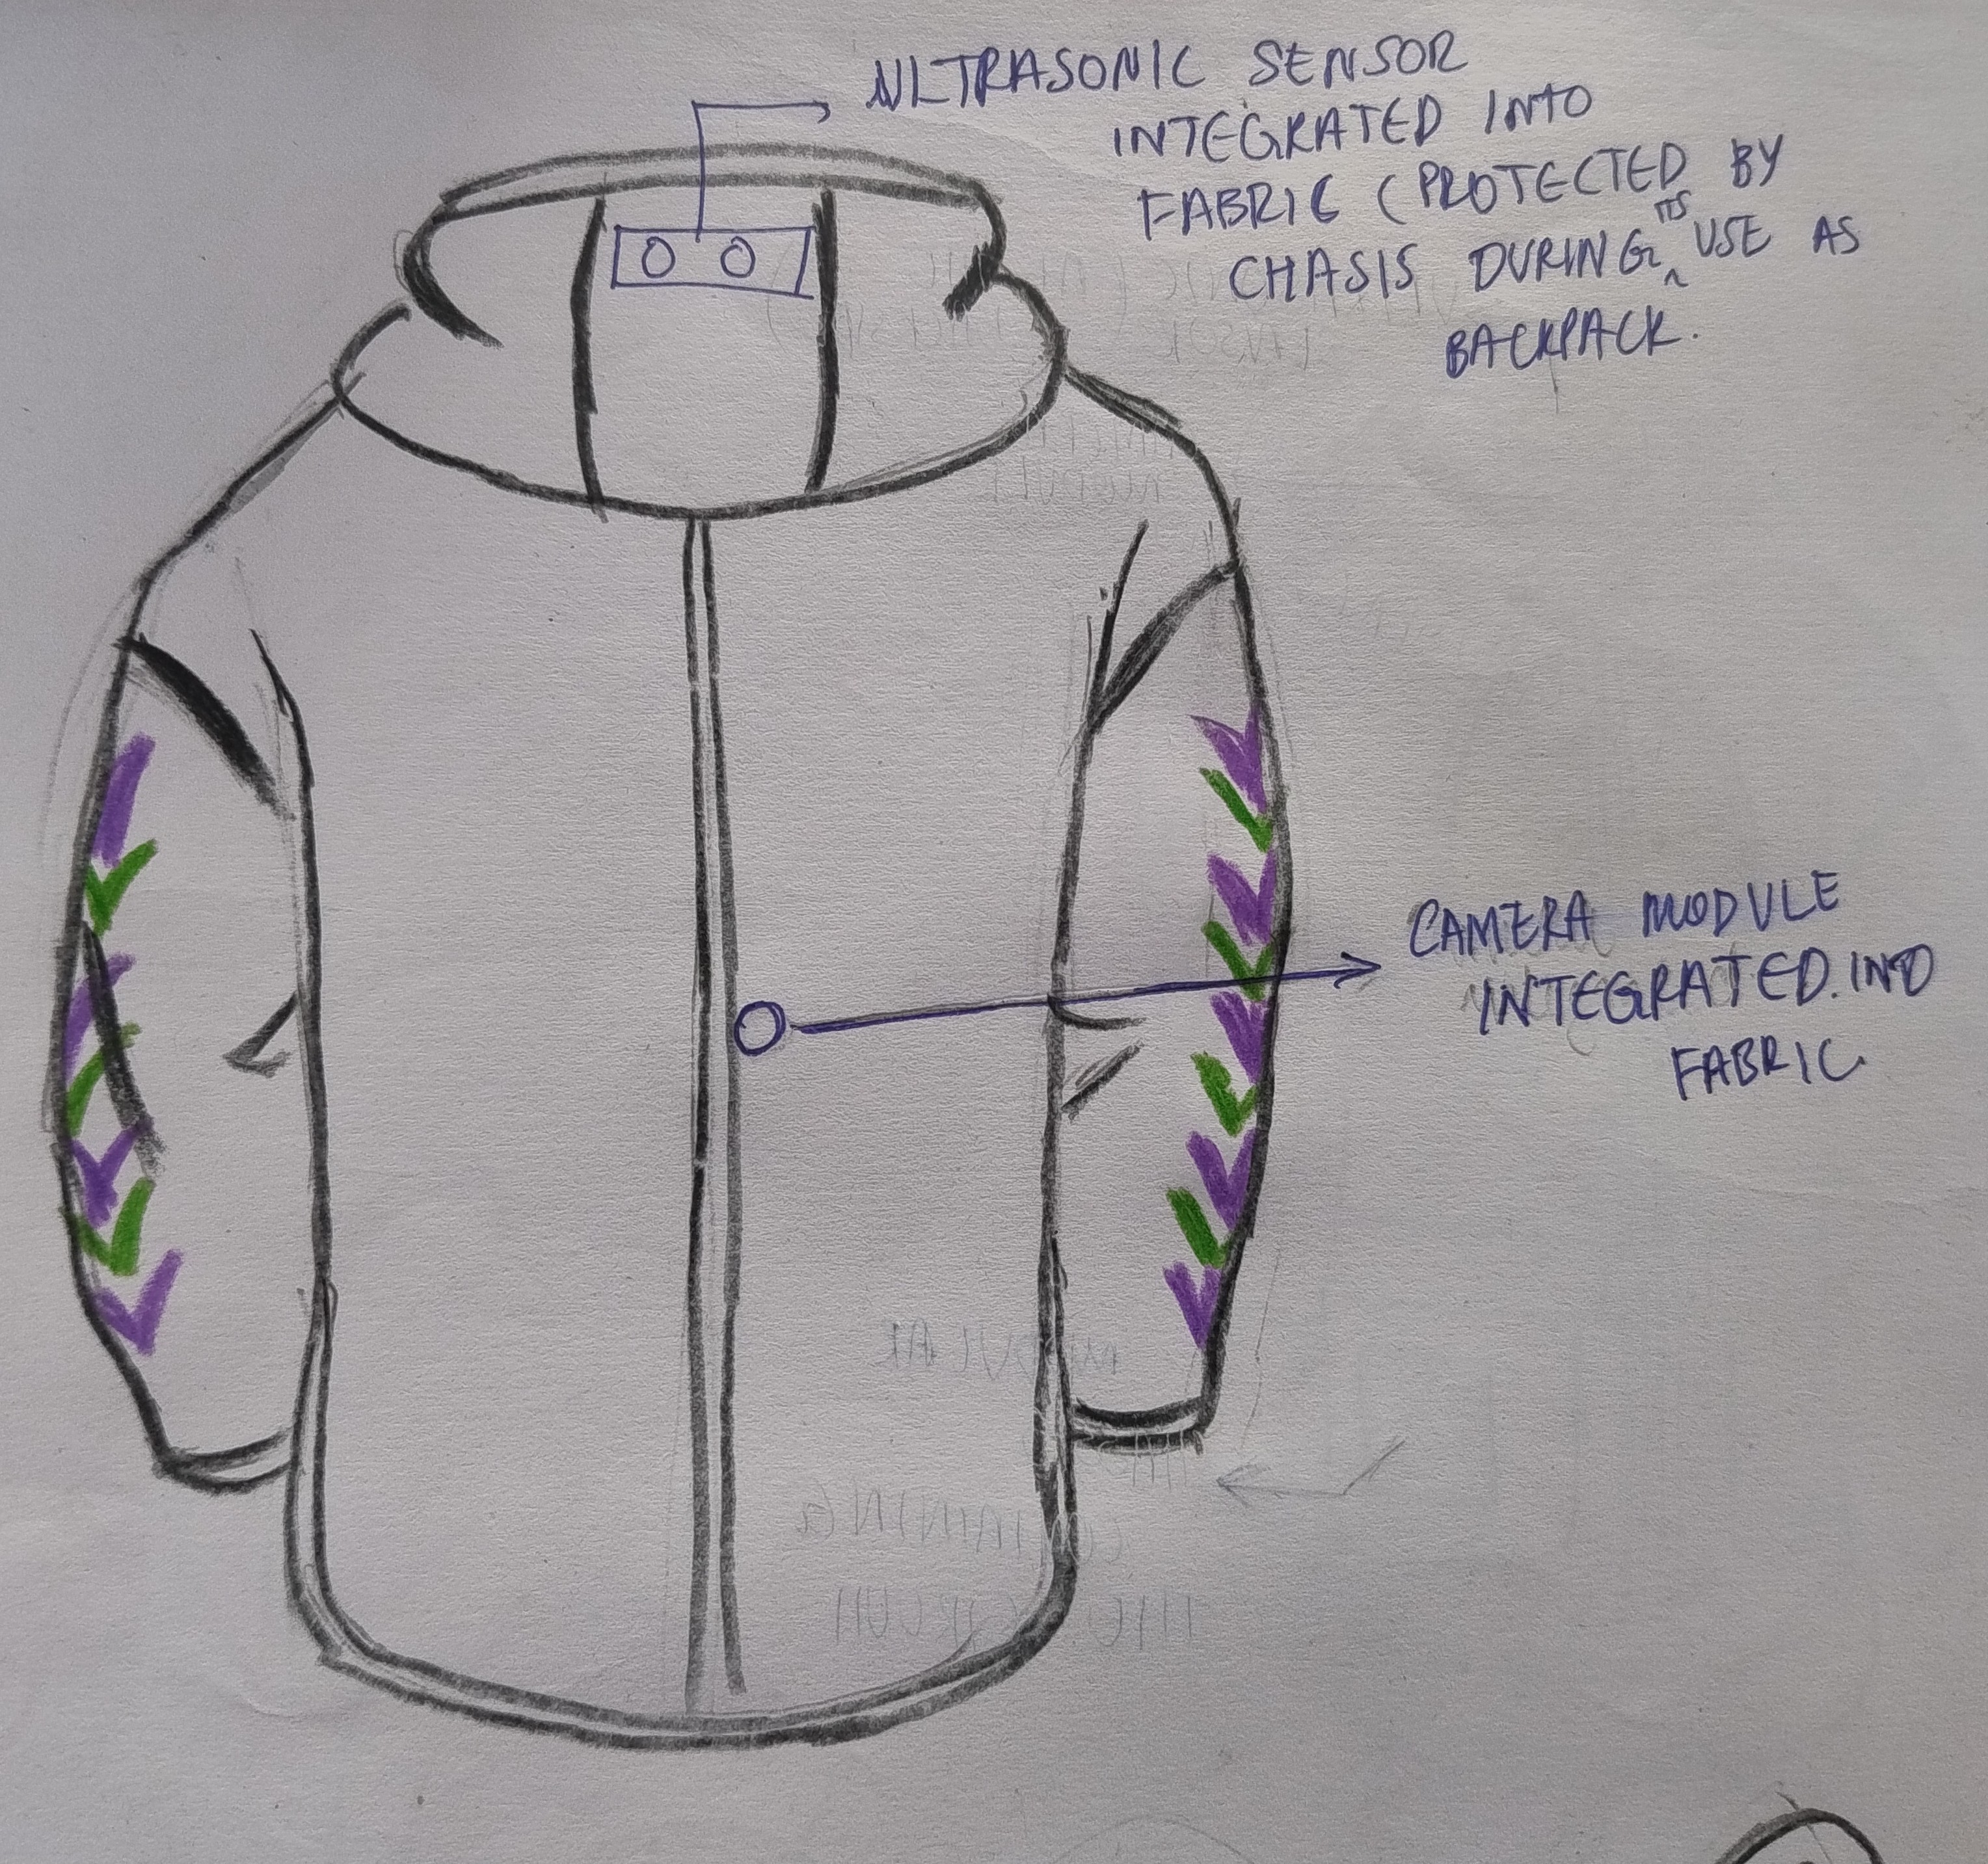 ULTRASONIC SENSOR
INTEGRATED INTO
FABRIC (PROTECTED BY
CHASIS DURING ITS USE AS
BACKPACK.
CAMERA MODULE
INTEGRATED INTO
FABRIC